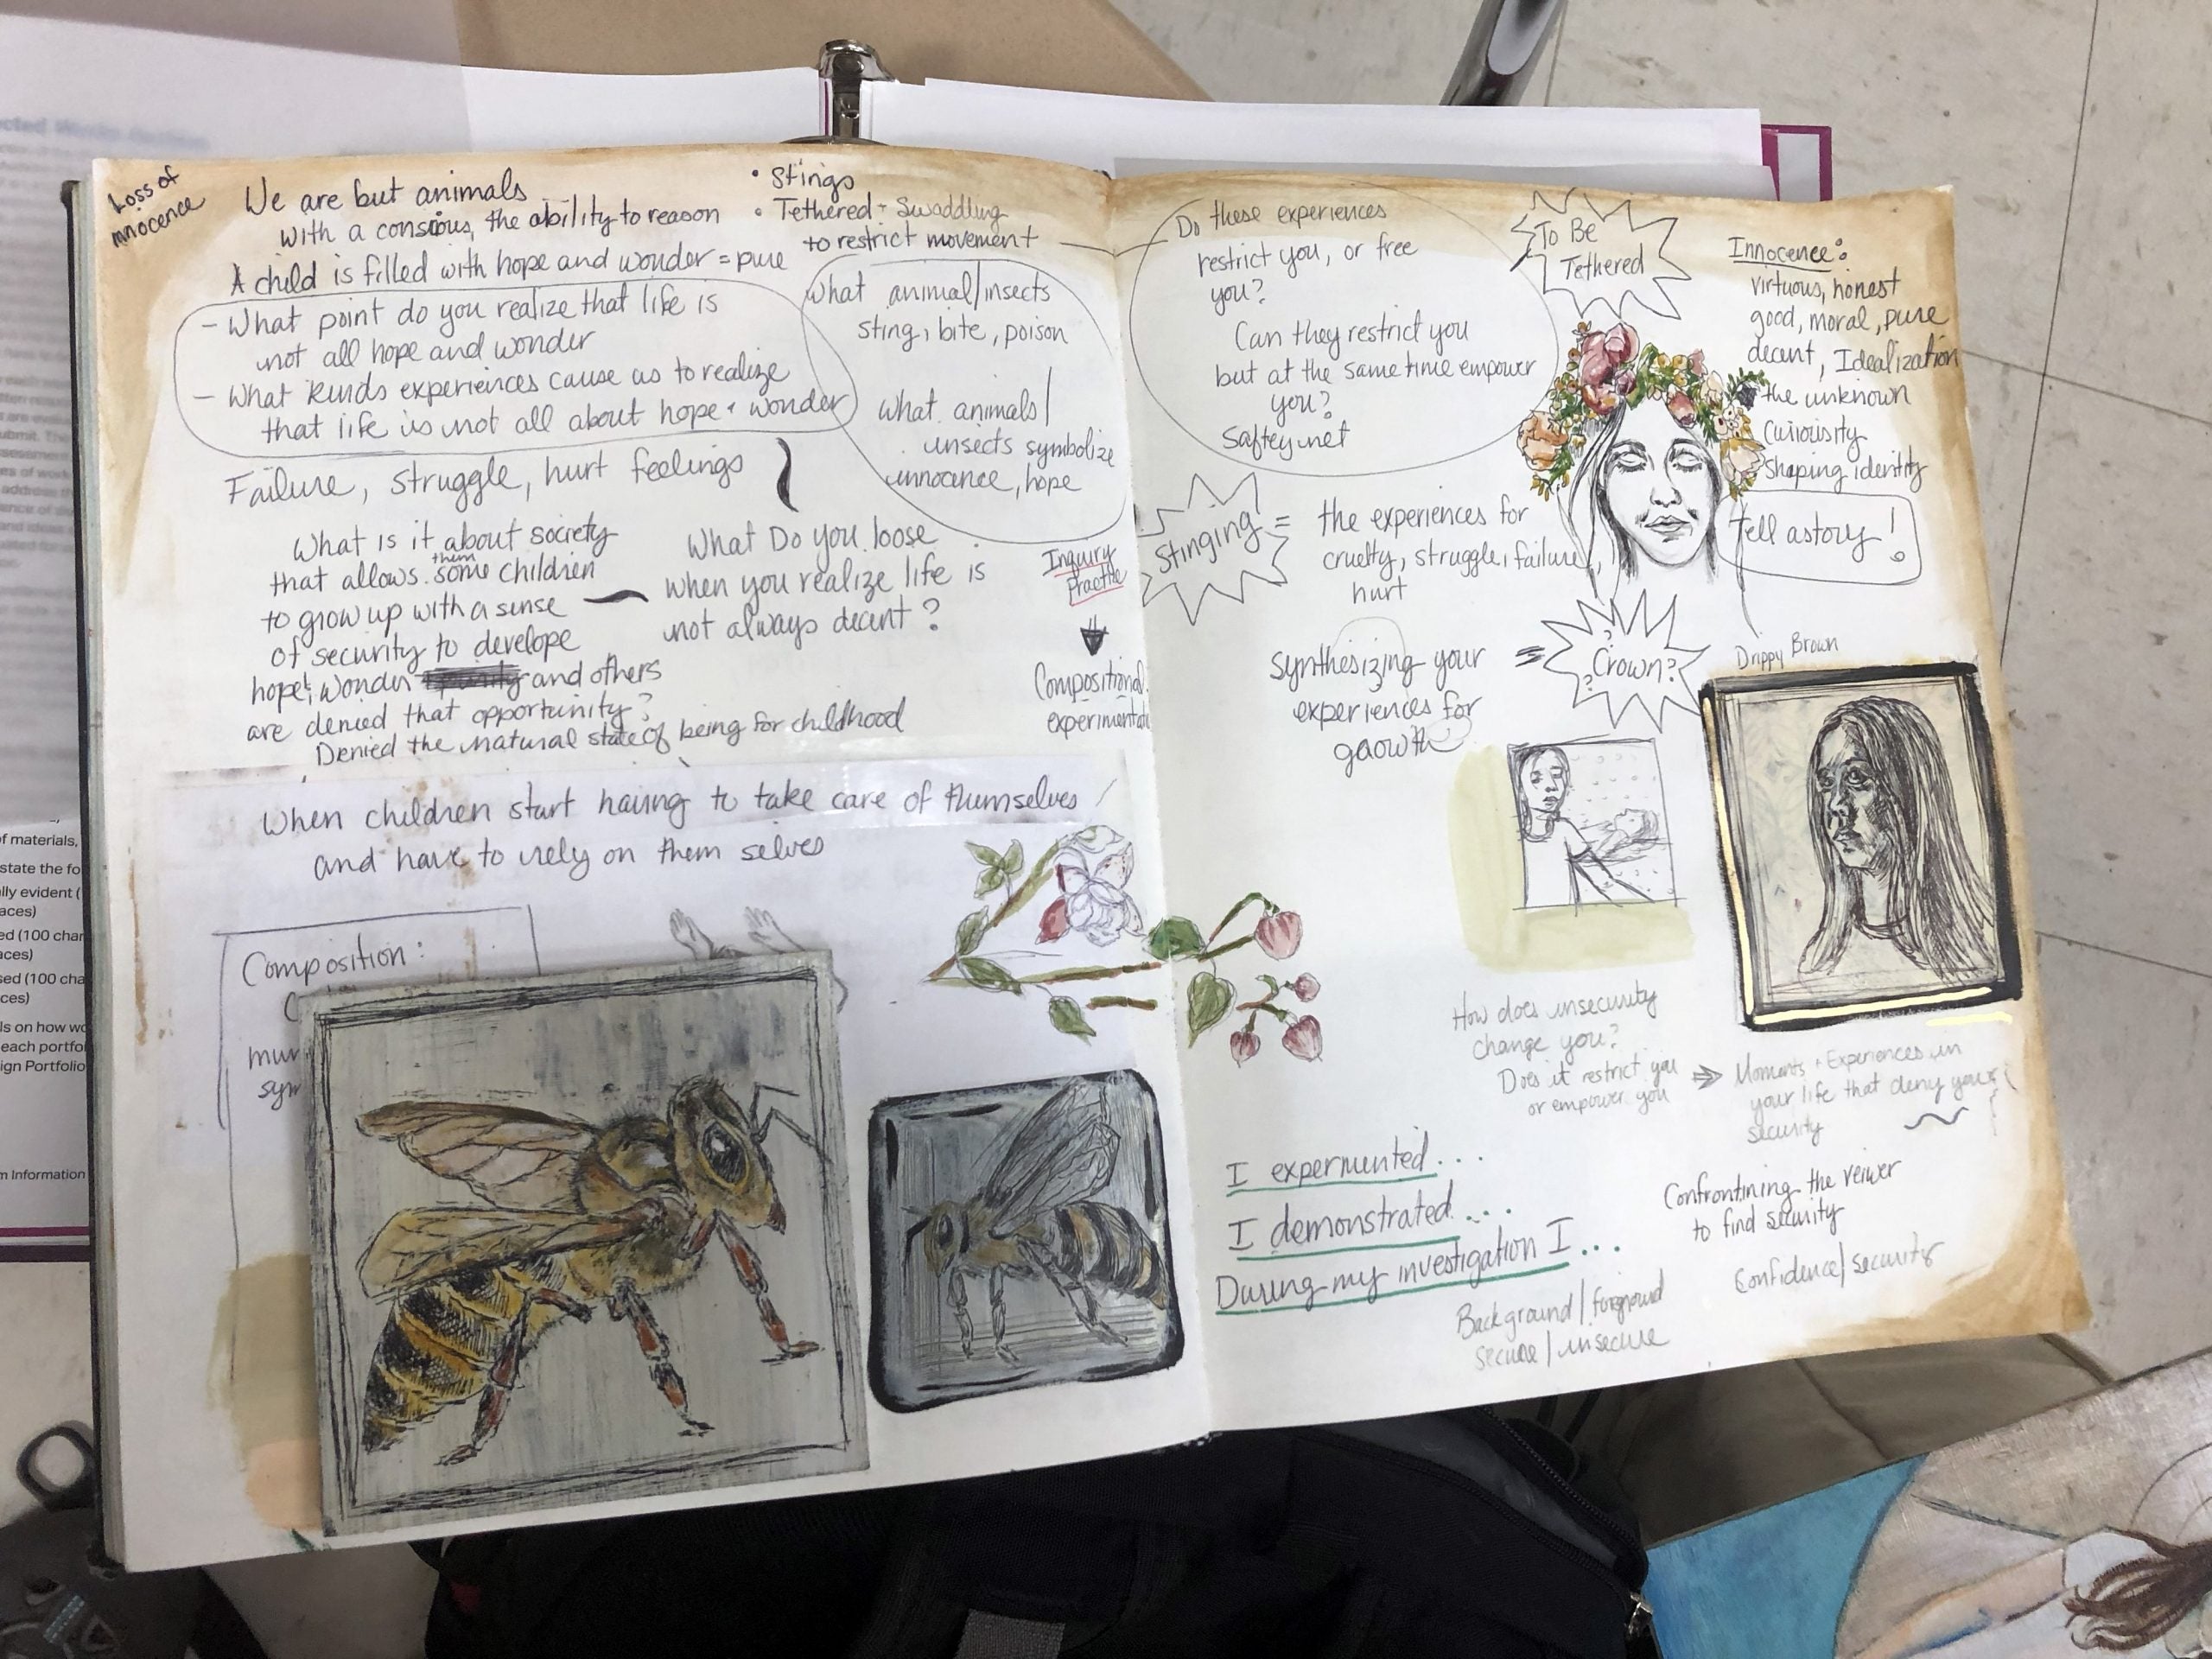 Loss of
innocence
We are but animals
with a conscious, the ability to reason
A child is filled with hope and wonder = pure
- What point do you realize that life is
not all hope and wonder
- What kinds experiences cause us to realize
that life is not all about hope + wonder
Failure, struggle, hurt feelings
What is it about society
that allows some children
them
to grow up with a sense
of security to develope
hope! wonder purity and others
are denied that opportunity?
Denied the natural state of being for childhood
What Do you loose
when you realize life is
not always decent?
• Stings
• Tethered - Swaddling
to restrict movement
What animal/insects
sting, bite, poison
what animals/
insects symbolize
innocence, hope
Inquiry
Practice
Compositional
experimentati
When children start having to take care of themselves
and have to rely on them selves
Composition:
mur
sym
Do these experiences
restrict you, or free
you?
Can they restrict you
but at the same time empower
you?
Saftey net
To Be
Tethered
Innocence:
virtuous, honest
good, moral, pure
decent, Idealization
the unknown
Curiousity
Shaping identity
Tell a story!
Stinging = the experiences for
cruelty, struggle, failure,
hurt
Synthesizing your = Crown?
experiences for
growth
Drippy Brown
How does insecurity
change you?
Does it restrict you
or empower you
Moments + Experiences in
your life that deny your
security
I experimented...
I demonstrated...
During my investigation I...
Confrontining the veiwer
to find security
Confidence/security
Background/foreground
secure/insecure
cted Works
of materials,
state the fo
lly evident (
aces)
ed (100 char
aces)
sed (100 cha
ces)
ls on how wo
each portfo
ign Portfolio
m Information